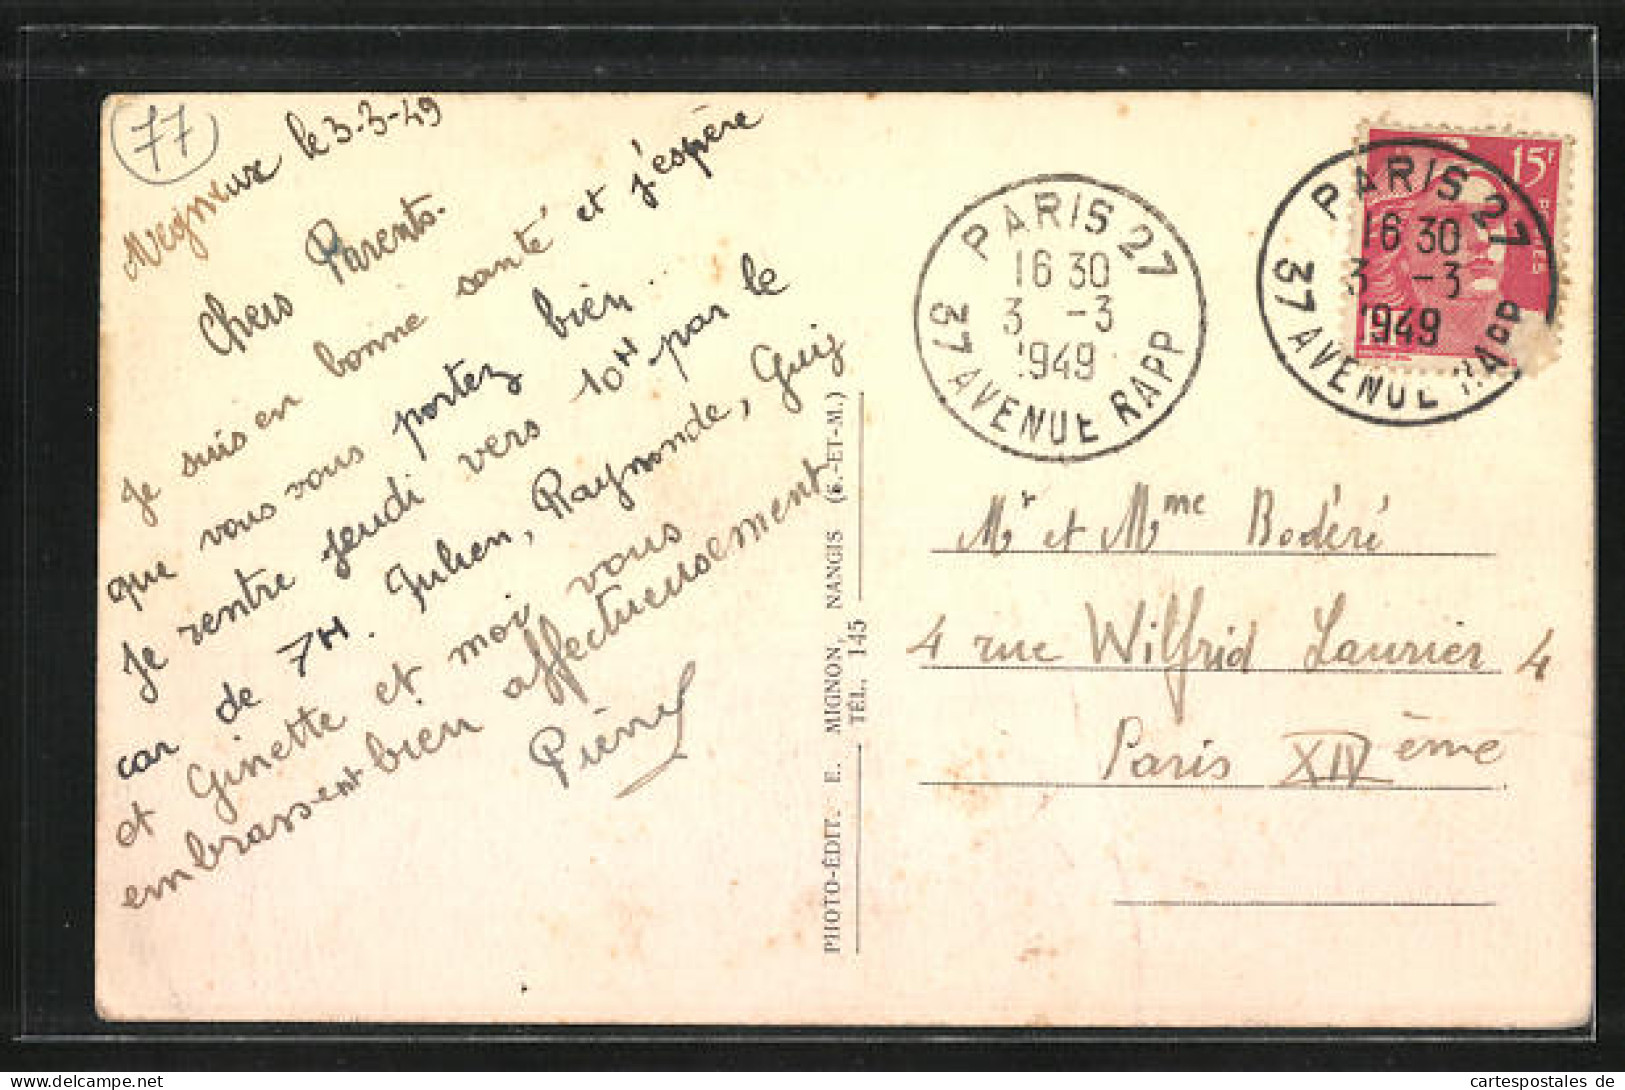 77
le 3-3-49
Chers Parents.
Je suis en bonne santé et j'espère
que vous vous portez bien..
Je rentre jeudi vers 10H par le
car de 7H. Julien, Raymonde, Guig
et Ginette et moi vous
embrassent bien affectueusement
Pierre
PHOTO-ÉDIT. E. MIGNON, NANGIS (S.-ET-M.)
TÉL. 145
PARIS 27
16 30
3 -3
1949
37 AVENUE RAPP
15F
PARIS 27
16 30
3 -3
1949
37 AVENUE RAPP
Mr et Mme Bodéré
4 rue Wilfrid Laurier 4
Paris XIVème
www.cartespostales.de